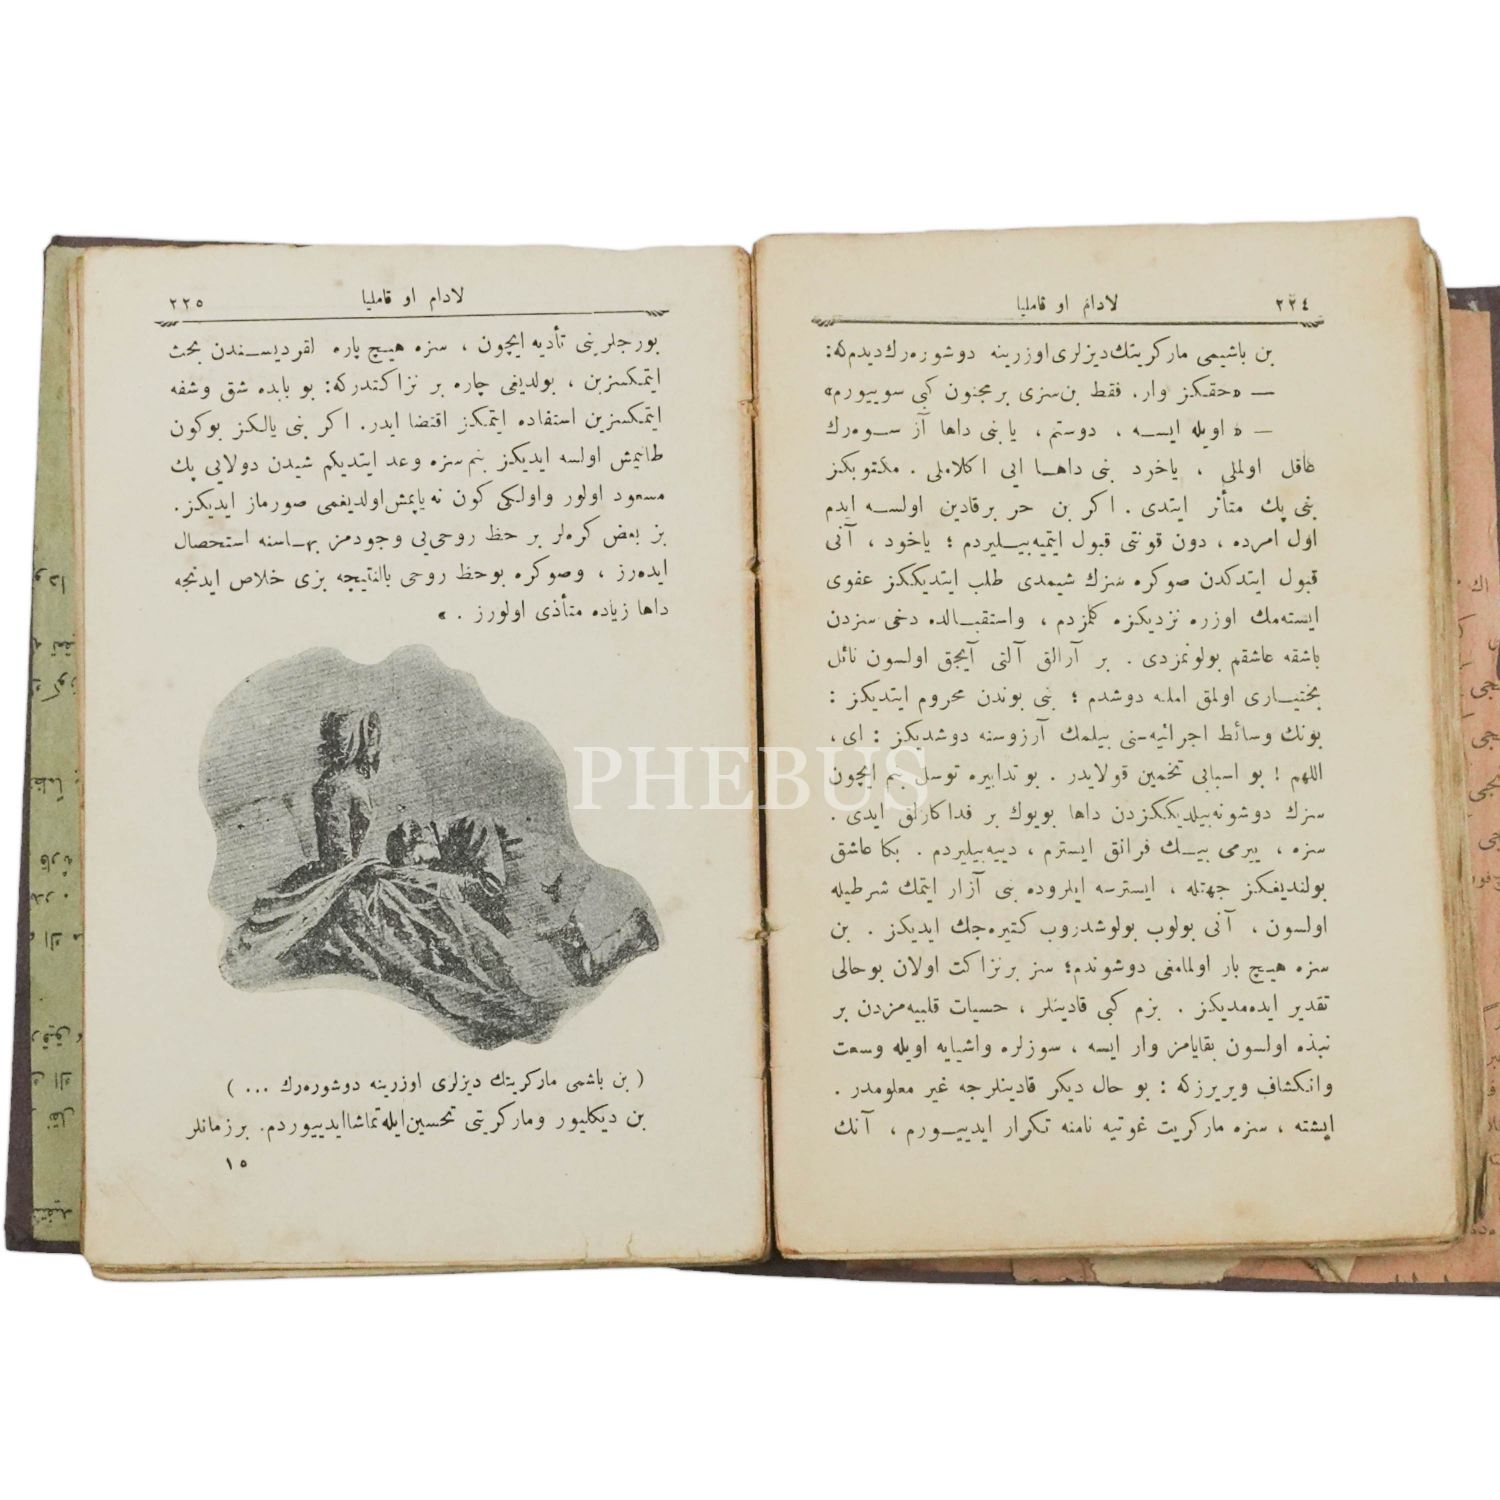 ٢٢٤
لادام او قاملیا
بن باشیمی مارکریتك دیزلری اوزرینه دوشوره‌رك دیدم‌که:
— «حقکز وار. فقط بن سزی بر مجنون کبی سویورم»
— « اویله ایسه ، دوستم ، یا بنی داها آز سوه‌رك
عاقل اولملی ، یاخود بنی داها ایی اکلاملی . مکتوبکز
بنی پك متأثر ایتدی . اکر بن حر بر قادین اولسه ایدم
اول امرده ، دون قونتی قبول ایتمیه‌بیلیردم ؛ یاخود ، آنی
قبول ایتدکدن صوکره سزك شیمدی طلب ایتدیککز عفوی
ایسته‌مك اوزره نزدیکزه کلمزدم ، واستقبالده دخی سزدن
باشقه عاشقم بولونمزدی . بر آرالق آلتی آیجق اولسون نائل
بختیاری اولمق املنه دوشدم ؛ بنی بوندن محروم ایتدیکز :
بونك وسائط اجرائیه‌سنی بیلمك آرزوسنه دوشدیکز : ای ،
اللهم ! بو اسبابی تخمین قولایدر . بو تدابیره توسل بنم ایچون
سزك دوشونه‌بیلدیککزدن داها بویوك بر فداکارلق ایدی .
سزه ، ییرمی بیك فرانق ایسترم ، دییه‌بیلیردم . بکا عاشق
بولندیغکز جهتله ، ایسترسه ایلروده بنی آزار ایتمك شرطیله
اولسون ، آنی بولوب بولوشدروب کتیره‌جك ایدیکز . بن
سزه هیچ بار اولمامغی دوشوندم؛ سز بر نزاکت اولان بو حالی
تقدیر ایده‌مدیکز . بزم کبی قادینلر ، حسیات قلبیه‌مزدن بر
نبذه اولسون بقایامز وار ایسه ، سوزلره واشیایه اویله وسعت
وانکشاف ویریرزکه : بو حال دیکر قادینلرجه غیر معلومدر .
ایشته ، سزه مارکریت غوتیه نامنه تکرار ایدییورم ، آنك
٢٢٥
لادام او قاملیا
بورجلرینی تأدیه ایچون ، سزه هیچ پاره لقردیسندن بحث
ایتمکسزین ، بولدیغی چاره بر نزاکتدرکه: بو بابده شق وشفه
ایتمکسزین استفاده ایتمکز اقتضا ایدر. اکر بنی یالکز بوکون
طانیمش اولسه ایدیکز بنم سزه وعد ایتدیکم شیدن دولایی پك
مسعود اولور واولکی کون نه یاپمش اولدیغمی صورماز ایدیکز.
بز بعض کره‌لر بر حظ روحی‌یی وجودمز بهاسنه استحصال
ایده‌رز ، وصوکره بو حظ روحی بالنتیجه بزی خلاص ایدنجه
داها زیاده متأذی اولورز . »
( بن باشمی مارکریتك دیزلری اوزرینه دوشوره‌رك ... )
بن دیکلیور ومارکریتی تحسین ایله تماشا ایدییوردم. بر زمانلر
١٥
PHEBUS